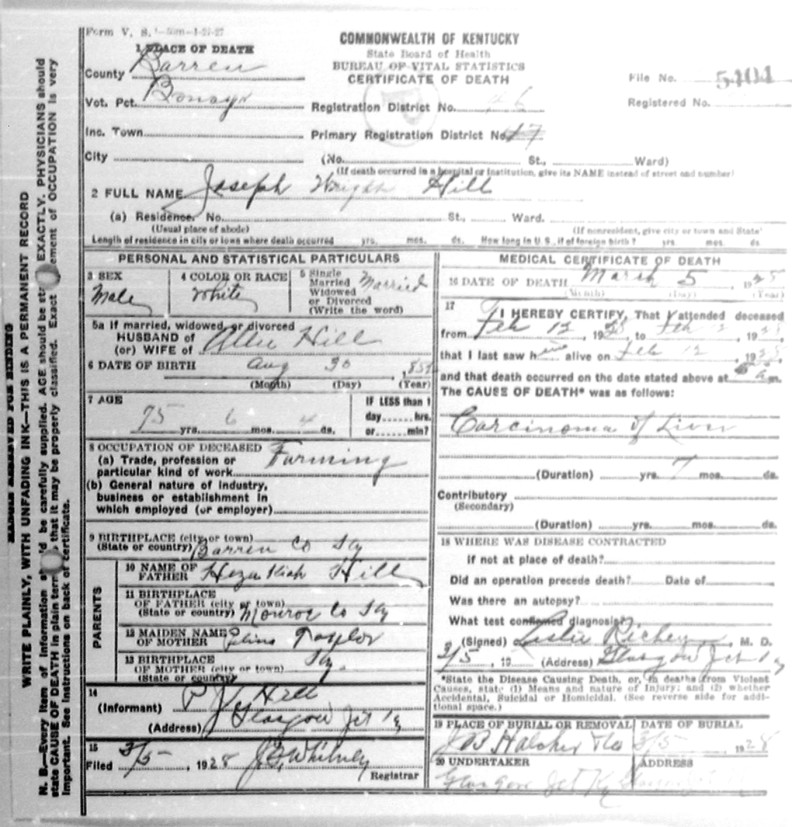 Form V. S.
COMMONWEALTH OF KENTUCKY
State Board of Health
BUREAU OF VITAL STATISTICS
CERTIFICATE OF DEATH
1 PLACE OF DEATH
County Barren
Vot. Pct.
Inc. Town
City
File No. 5404
Registered No.
Registration District No. 46
Primary Registration District No. 17
(No. St., Ward)
(If death occurred in a hospital or institution, give its NAME instead of street and number)
2 FULL NAME Joseph Wright Hill
(a) Residence. No. St., Ward.
(Usual place of abode) (If nonresident, give city or town and State)
Length of residence in city or town where death occurred yrs. mos. ds. How long in U. S., if of foreign birth? yrs. mos. ds.
PERSONAL AND STATISTICAL PARTICULARS
3 SEX
Male
4 COLOR OR RACE
White
5 Single
Married
Widowed
or Divorced
(Write the word)
Married
5a If married, widowed or divorced
HUSBAND of
(or) WIFE of Allie Hill
6 DATE OF BIRTH Aug 30
(Month) (Day) (Year)
7 AGE
75 yrs. 6 mos. ds.
IF LESS than 1
day hrs.
or min?
8 OCCUPATION OF DECEASED
(a) Trade, profession or
particular kind of work Farming
(b) General nature of industry,
business or establishment in
which employed (or employer)
9 BIRTHPLACE (city or town)
(State or country) Barren Co Ky
PARENTS
10 NAME OF
FATHER Hezekiah Hill
11 BIRTHPLACE
OF FATHER (city or town)
(State or country) Monroe Co Ky
12 MAIDEN NAME
OF MOTHER Taylor
13 BIRTHPLACE
OF MOTHER (city or town)
(State or country) Ky.
14
(Informant) P J Hill
(Address) Glasgow Jct Ky
15
Filed 3/5, 1928 Whitney
Registrar
MEDICAL CERTIFICATE OF DEATH
16 DATE OF DEATH March 5 1928
(Month) (Day) (Year)
17
I HEREBY CERTIFY, That I attended deceased
from Feb 12, 1928 to Feb
that I last saw him alive on Feb 12, 1928
and that death occurred on the date stated above at m.
The CAUSE OF DEATH* was as follows:
Carcinoma of Liver
(Duration) yrs. 7 mos. ds.
Contributory
(Secondary)
(Duration) yrs. mos. ds.
18 WHERE WAS DISEASE CONTRACTED
If not at place of death?
Did an operation precede death? Date of
Was there an autopsy?
What test confirmed diagnosis?
(Signed) Leslie Richey, M. D.
3/5, 19 (Address) Glasgow Jct Ky
*State the Disease Causing Death, or, in deaths from Violent
Causes, state (1) Means and nature of Injury; and (2) whether
Accidental, Suicidal or Homicidal. (See reverse side for addi-
tional space.)
19 PLACE OF BURIAL OR REMOVAL
DATE OF BURIAL
3/5 1928
20 UNDERTAKER
ADDRESS
Glasgow Jct Ky
MARGIN RESERVED FOR BINDING
WRITE PLAINLY, WITH UNFADING INK—THIS IS A PERMANENT RECORD
N. B.—Every item of information should be carefully supplied. AGE should be stated EXACTLY. PHYSICIANS should
state CAUSE OF DEATH in plain terms that it may be properly classified. Exact statement of OCCUPATION is very
important. See instructions on back of certificate.